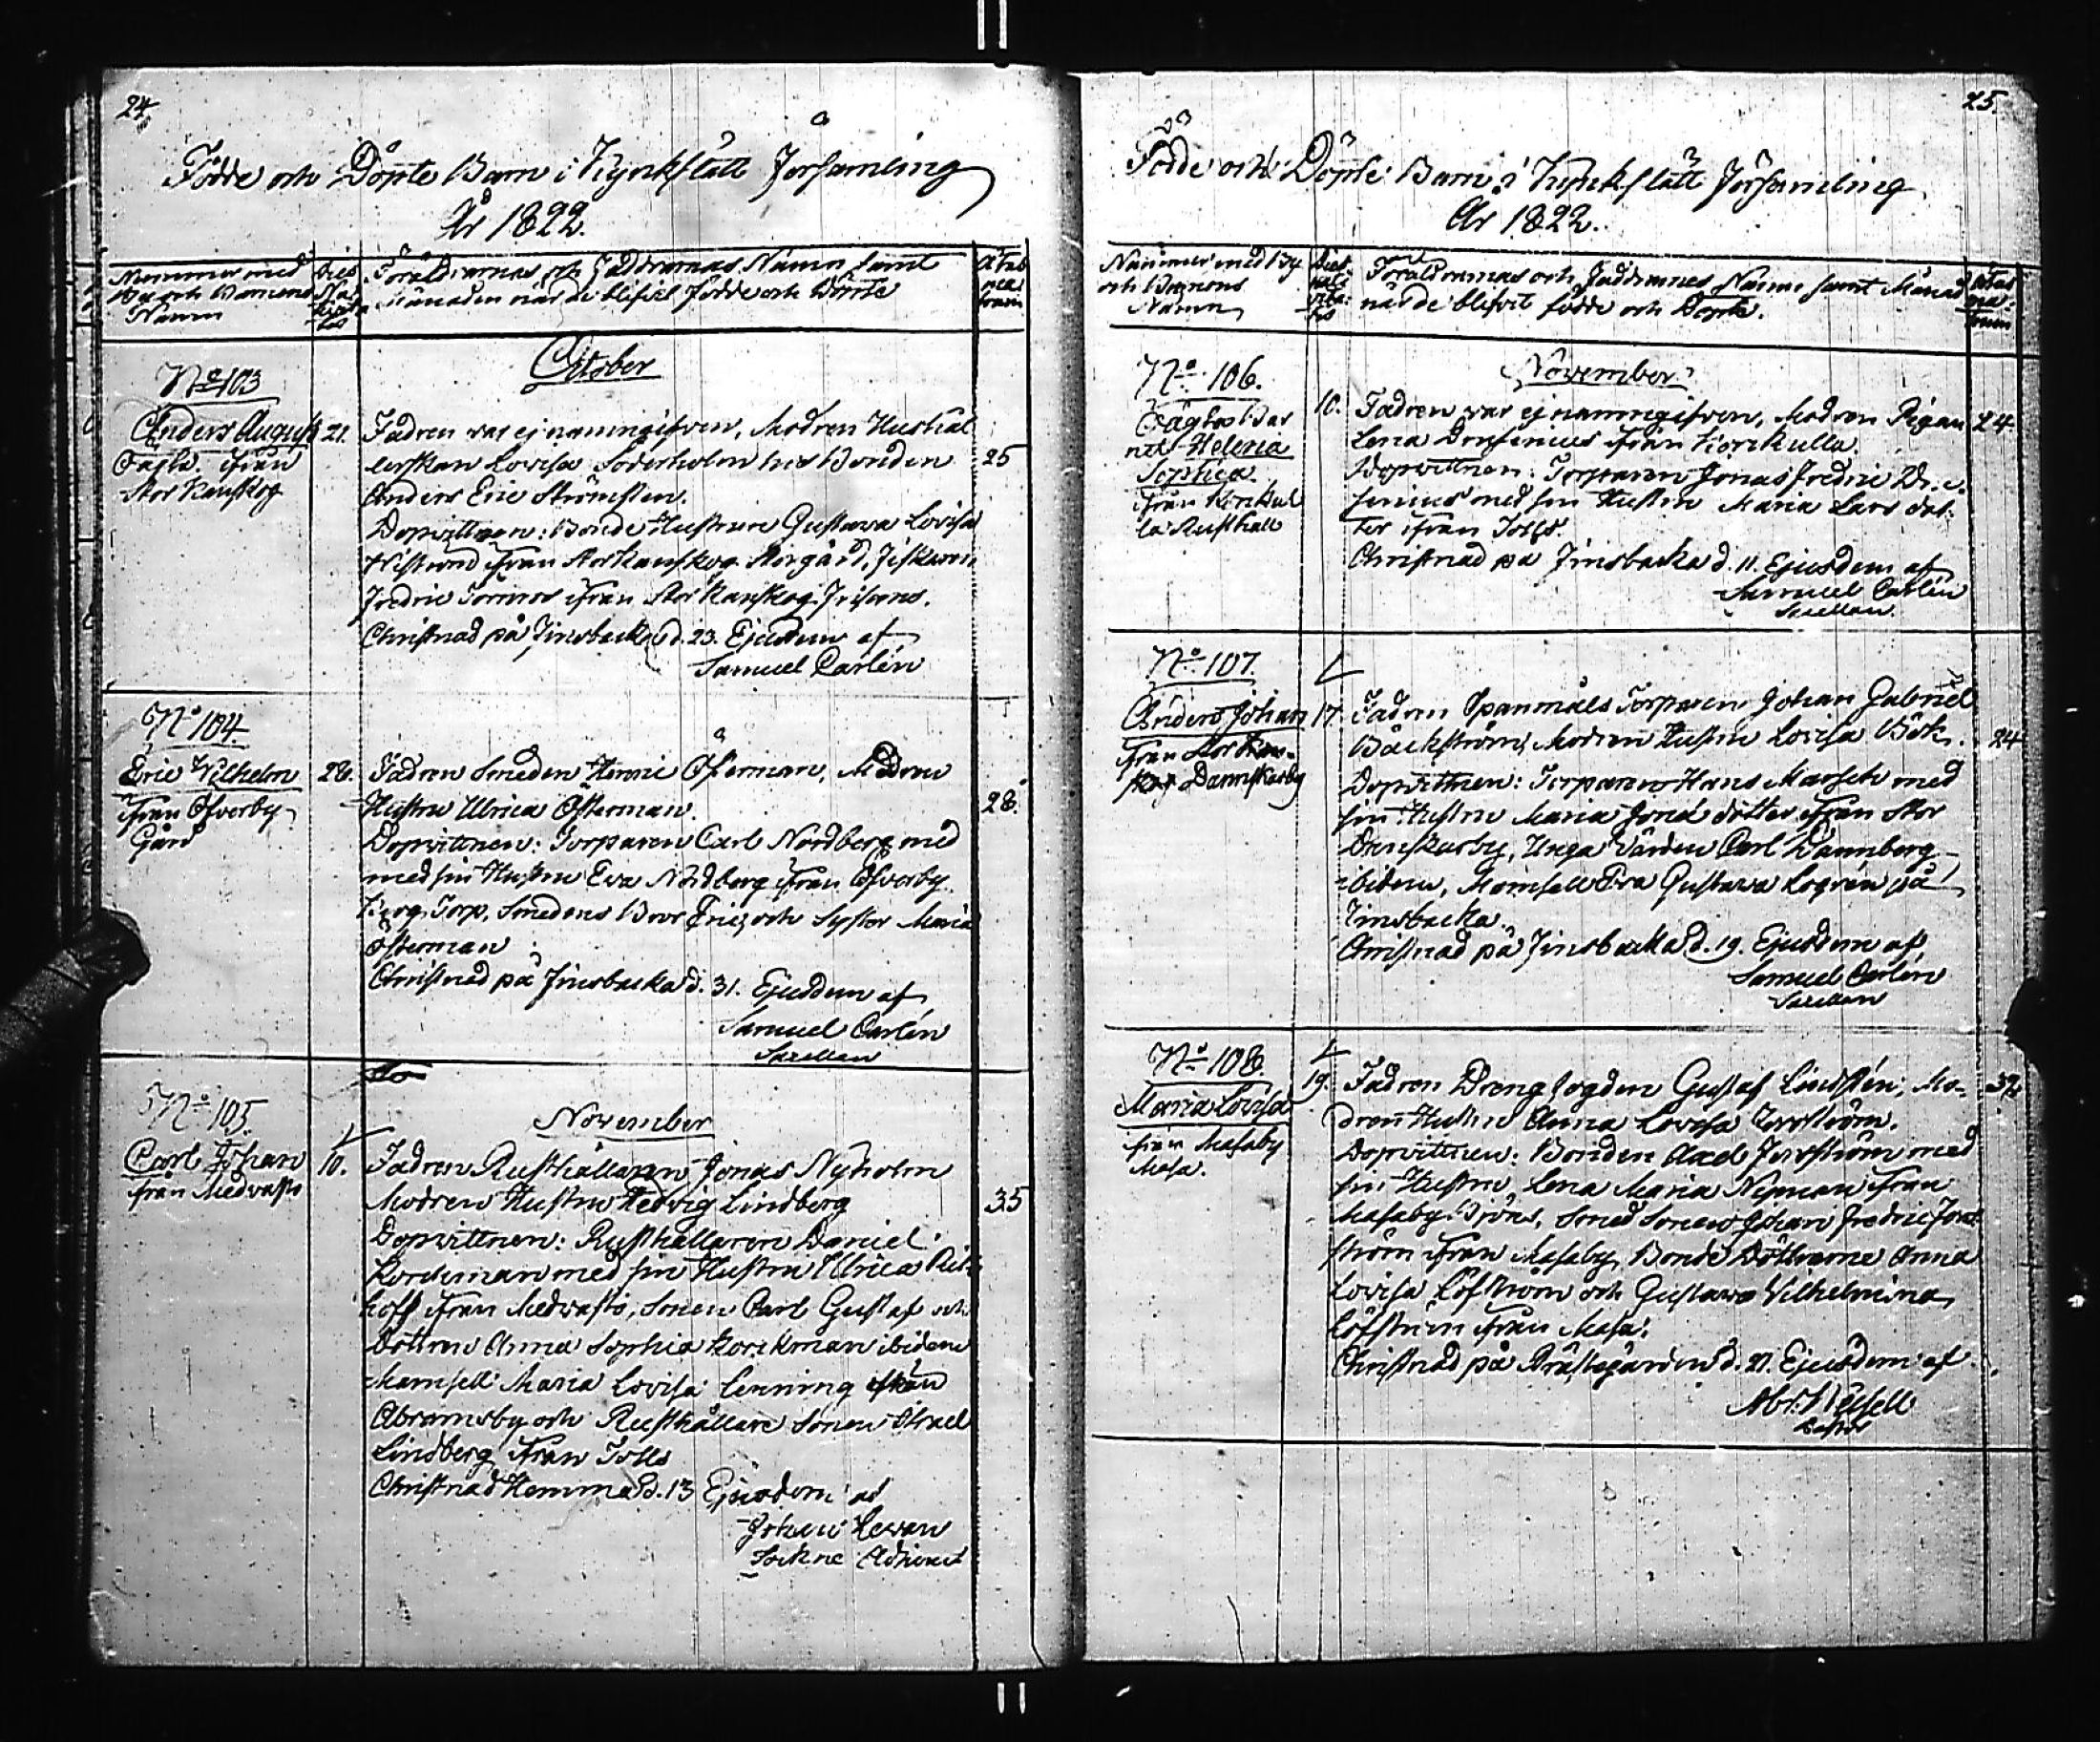 24
Födde och Döpte Barn i Kyrkslätt Församling
År 1822.
Nummer med
By och Barnens
Namn
Dies
Na
tivita
tis
Föräldrarnas och Faddrarnas Namn samt
Månaden när de blifvit födde och Döpte
Modrens
October
No 103
Anders August
Oägta från
Stor Kanskog
21.
Fadren var ej namngifven, Modren Hushål
lerskan Lovisa Söderholm hos Bonden
Anders Eric Strömsten.
Dopvittnen: Bonde Hustrun Gustava Lovisa
från Storkanskog Storgård,
Fredric från Stor Kanskog
Christnad på Finsbacka d. 23. Ejusdem af
Samuel Carlén
25
No 104.
Eric Wilhelm
från Öfverby
Gård
28.
Fadren Smeden Henric Österman, Modren
Hustru Ulrica Österman.
Dopvittnen: Torparen Carl Nordberg med
med sin Hustru Eva Nordberg från Öfverby
Torp, Smedens Bror Eric och Syster Maria
Österman
Christnad på Finsbacka d. 31. Ejusdem af
Samuel Carlén
Sacellan
28.
November
No 105.
Carl Johan
från Medvasto
10.
Fadren Rusthållaren Jonas Nyholm
Modren Hustru Hedvig Lindberg
Dopvittnen: Rusthållaren Daniel
med sin Hustru Ulrica
hoff från Medvasto, Sonen Carl Gustaf och
Dottren Anna Sophia ibidem
Mamsell Maria Lovisa Lenning från
Abramsby och Rusthållare Sonen
Lindberg från Tolls
Christnad Hemma d. 13 Ejusdem af
Johan
Sockne Adjunct
35
25.
Födde och Döpte Barn i Kyrkslätt Församling
År 1822.
Nummer med By
och Barnens
Namn
Dies
nati
vita
tis
Föräldrarnas och Faddrarnes Namn samt Månad
när de blifvit födde och Döpte.
November
No 106.
Oägta Bar
net Helena
Sophia
från
la Rusthåll
10.
Fadren var ej namngifven, Modren Pigan
Lena från
Dopvittnen: Torparen Jonas Fredric
med sin Hustru Maria Lars dot
ter från Tolls.
Christnad på Finsbacka d. 11. Ejusdem af
Samuel Carlén
Sacellan.
24
No 107.
Anders Johan
från Stor Kan-
skog Dannskarby
17.
Fadren Spanmåls Torparen Johan Gabriel
Bäckström, Modren Hustru Lovisa Bök.
Dopvittnen: Torparen Hans med
sin Hustru Maria Jona dotter från Stor
Danskarby, Unga Värden Carl Dannberg
ibidem, Mamsell Eva Gustava Logrén på
Finsbacka.
Christnad på Finsbacka d. 19. Ejusdem af
Samuel Carlén
Sacellan
24
No 108.
Maria Lovisa
från Masaby
Masa.
19.
Fadren Dreng fogden Gustaf Lindstén, Mo-
dren Hustru Anna Lovisa
Dopvittnen: Bonden Axel med
sin Hustru Lena Maria Nyman från
Masaby Smed Sonen Johan Fredric
ström från Masaby, Bonde Döttrarne Anna
Lovisa Löfström och Gustava Vilhelmina
Löfström från Masa.
Christnad på Prästegården d. 21. Ejusdem af
Abr. Wesell
Pastor
32